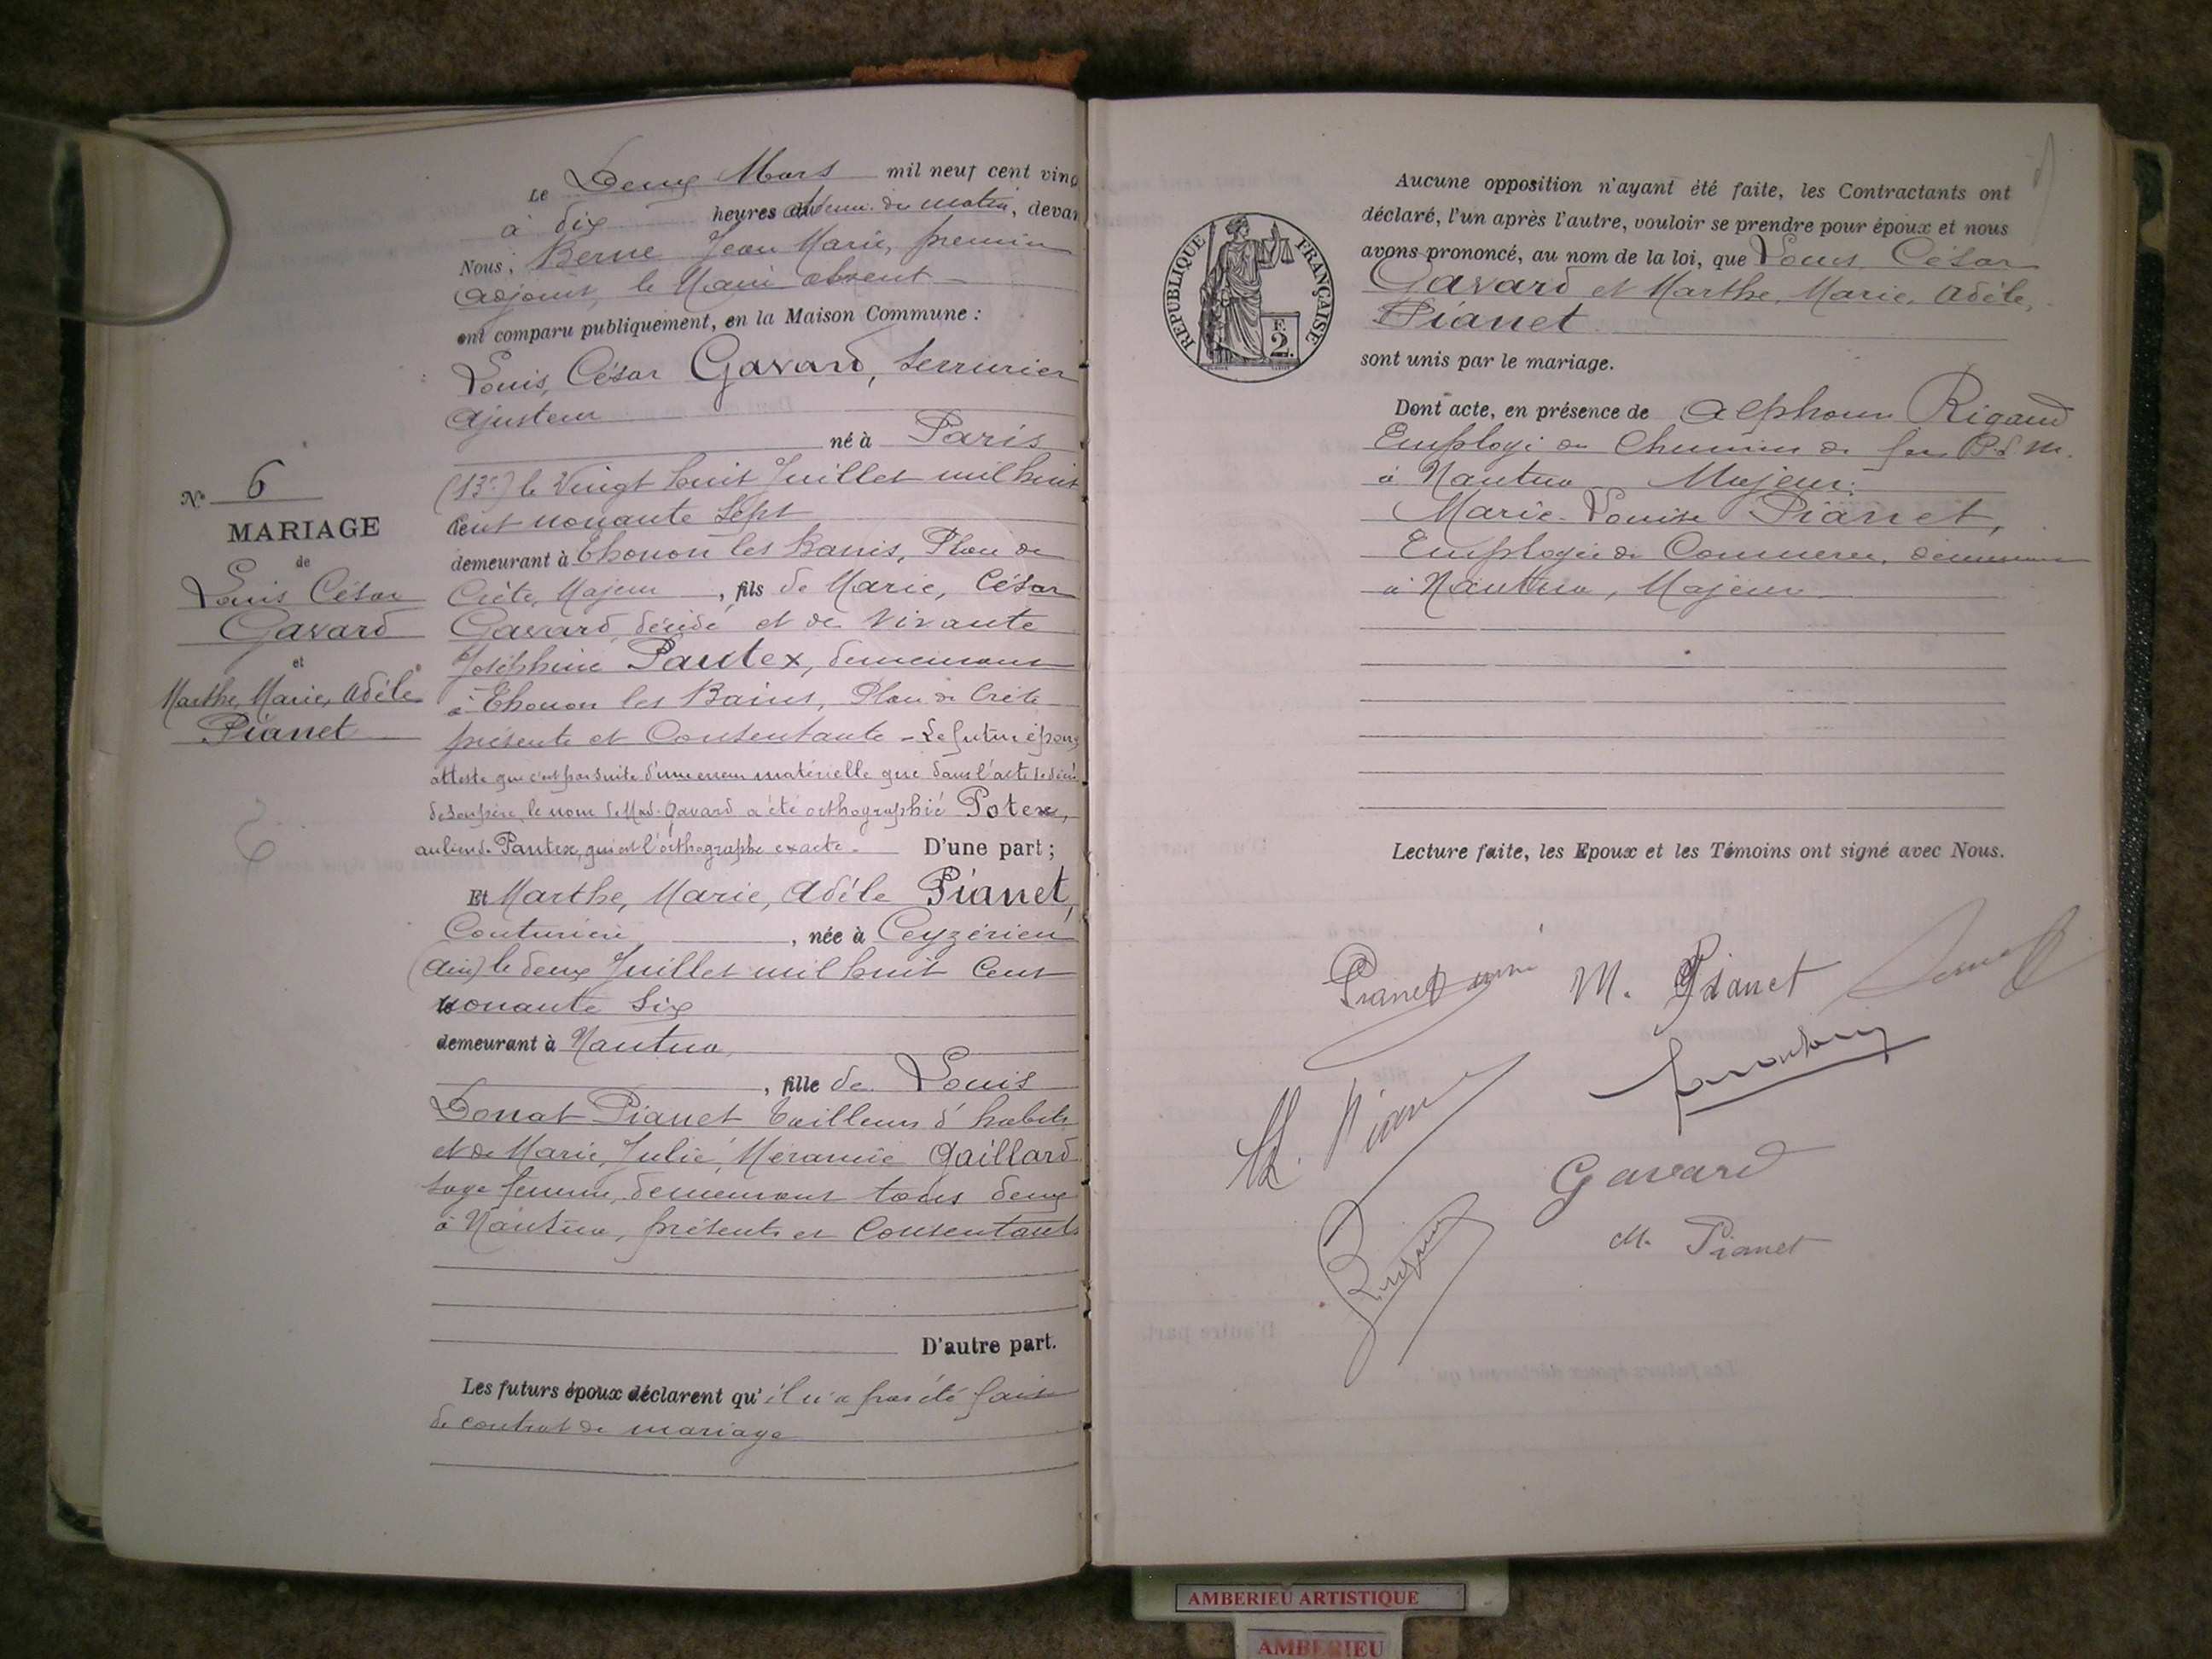 Le Deux Mars mil neuf cent vingt
à dix heures du matin, devan
Nous, Berne Jean Marie, premier
adjoint, le Maire absent
ont comparu publiquement, en la Maison Commune :
Louis, César Gavard, Serrurier
Ajusteur
né à Paris
(13e) le Vingt huit Juillet mil huit
cent nonante Sept
demeurant à Thonon les Bains, Plan de
Crête, Majeur, fils de Marie, César
Gavard décédé et de vivante
Joséphine Pautex, demeurant
à Thonon les Bains, Plan de Crête
présente et Consentante - Le futur époux
atteste que c'est par suite d'une erreur matérielle que dans l'acte de décès
de son père, le nom de Mad. Gavard a été orthographié Potex,
au lieu de Pautex, qui est l'orthographe exacte. D'une part ;
N° 6
MARIAGE
de
Louis César
Gavard
et
Marthe, Marie, Adèle
Pianet
Et Marthe, Marie, Adèle Pianet,
Couturière, née à Ceyzérieu
(Ain) le deux Juillet mil huit Cent
nonante Six
demeurant à Nantua
, fille de Louis
Donat Pianet tailleur d'habits
et de Marie, Julie, Gaillard
sage femme, demeurant tous deux
à Nantua, présents et Consentants
D'autre part.
Les futurs époux déclarent qu'il n'a pas été fait
de contrat de mariage
RÉPUBLIQUE FRANÇAISE
F.
2.
Aucune opposition n'ayant été faite, les Contractants ont
déclaré, l'un après l'autre, vouloir se prendre pour époux et nous
avons prononcé, au nom de la loi, que Louis César
Gavard et Marthe, Marie, Adèle,
Pianet
sont unis par le mariage.
Dont acte, en présence de Alphonse Rigaud
Employé du Chemin de fer P.L.M.
à Nantua Majeur.
Marie-Louise Pianet,
Employée de Commerce, demeurant
à Nantua, Majeure
Lecture faite, les Epoux et les Témoins ont signé avec Nous.
Pianet M. Pianet
Gavard
M. Pianet
AMBERIEU ARTISTIQUE
AMBERIEU